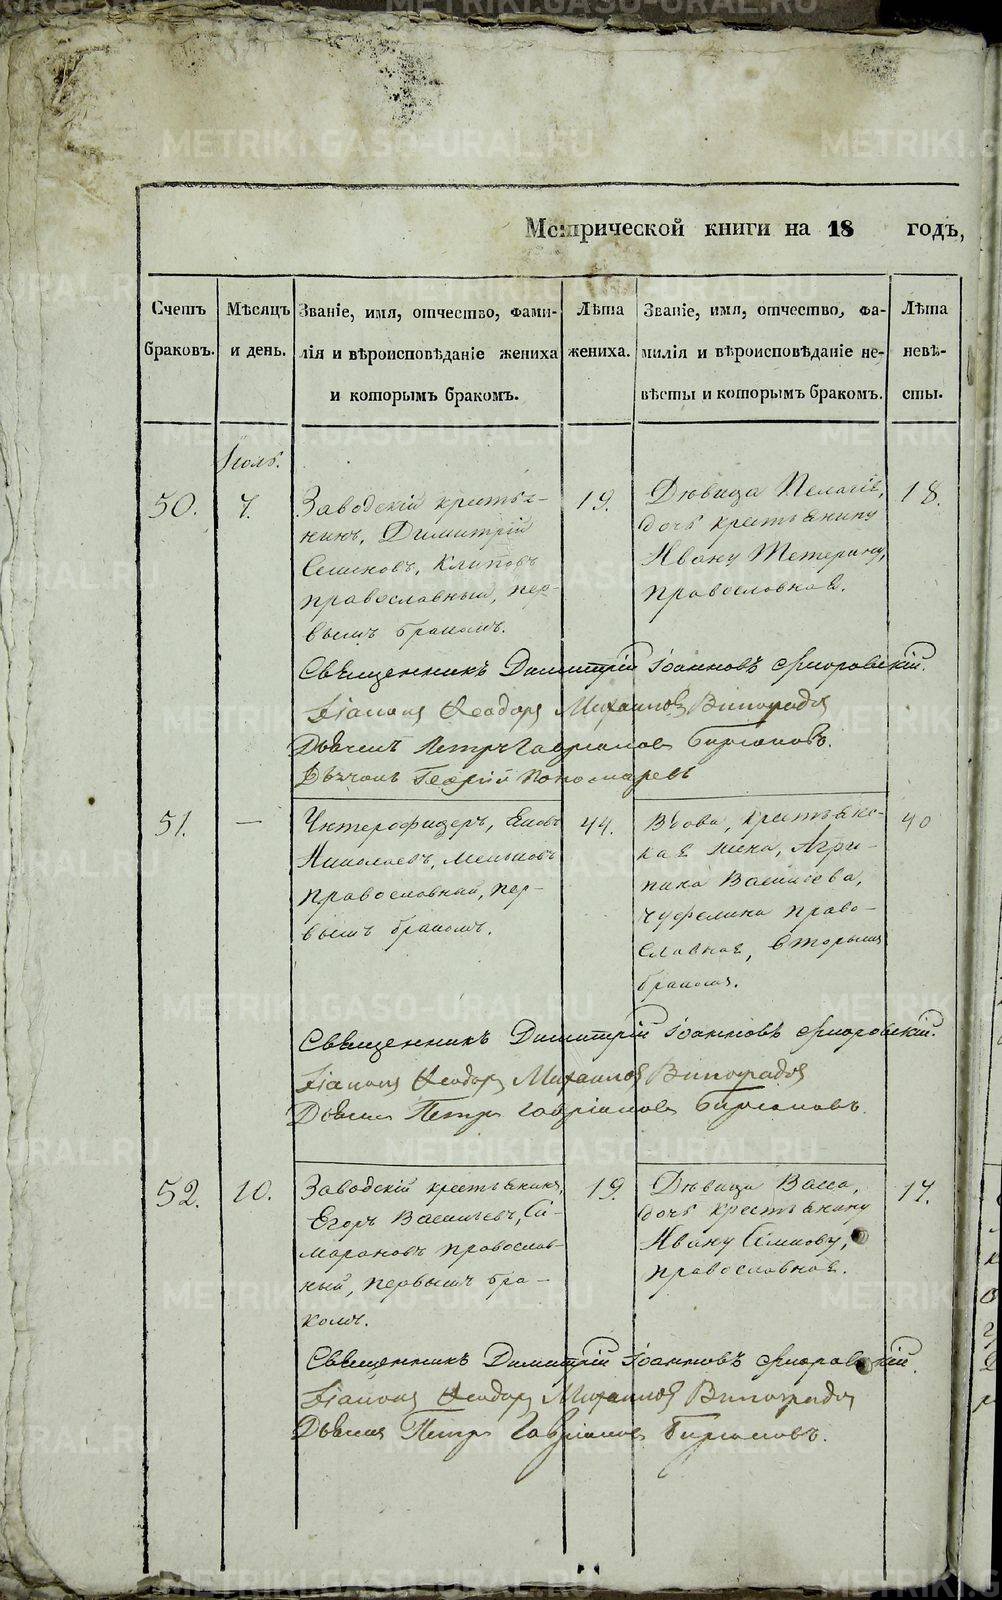 METRIKI.GASO-URAL.RU
Метрической книги на 18 годъ,
Счетъ браковъ.
Мѣсяцъ и день.
Званіе, имя, отчество, фами-
лія и вѣроисповѣданіе жениха
и которымъ бракомъ.
Лѣта жениха.
Званіе, имя, отчество, фа-
милія и вѣроисповѣданіе не-
вѣсты и которымъ бракомъ.
Лѣта невѣ-
сты.
Іюль.
50.
7.
Заводскій крестья-
нинъ, Димитрій
православный, пер-
вымъ бракомъ.
19.
Дѣвица Пелагія,
дочь крестьянину
Ивану Тетерину,
православная.
18.
Священникъ Димитрій Іоанновъ Флоровскій.
Діаконъ Ѳеодоръ Михаиловъ Виноградов
Дьячекъ Петръ Гавріиловъ
Георгій Пономаревъ
51.
—
Унтерофицеръ,
Николаевъ,
православный, пер-
вымъ бракомъ.
44.
Вдова, крестьянс-
кая жена, Агри-
пина Василиева,
право-
славная, вторымъ
бракомъ.
40
Священникъ Димитрій Іоанновъ Флоровскій.
Діаконъ Ѳеодоръ Михаиловъ Виноградов
Петръ Гавріиловъ
52.
10.
Заводскій крестьянинъ,
Егоръ Васильевъ, Са-
марановъ православ-
ный, первымъ бра-
комъ.
19.
Дѣвица Васса,
дочь крестьянину
Ивану
православная.
17.
Священникъ Димитрій Іоанновъ Флоровскій.
Діаконъ Ѳеодоръ Михаиловъ Виноградов
Петръ Гавріиловъ